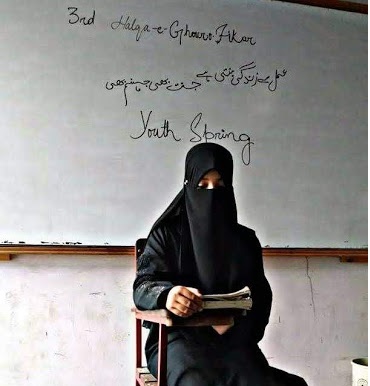 3rd Halqa-e-Ghouro-Fikar
عمل سے زندگی بنتی ہے جنت بھی جہنم بھی
Youth Spring